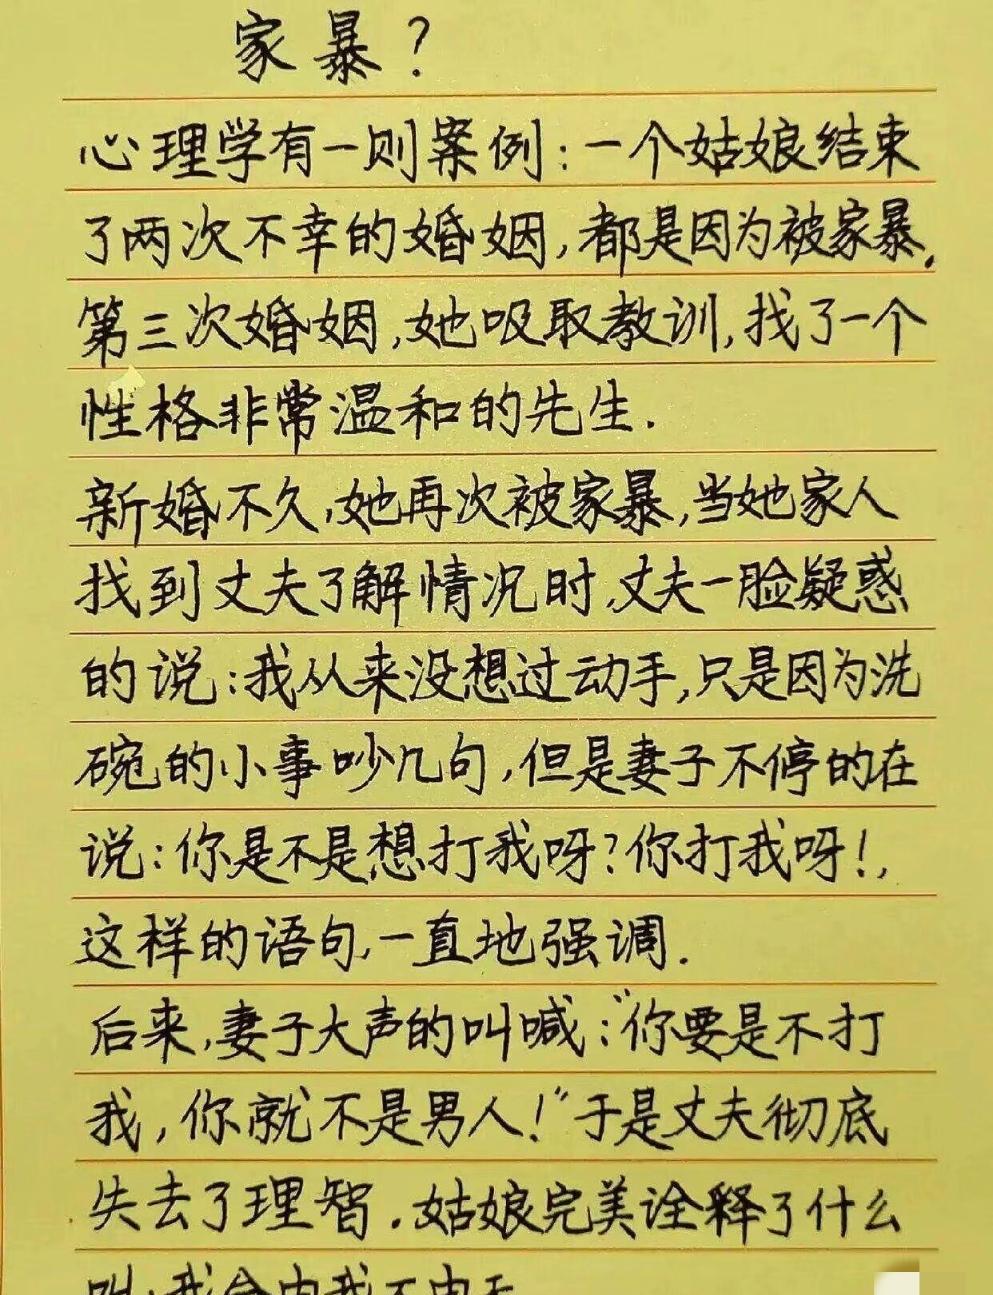 家暴？
心理学有一则案例：一个姑娘结束
了两次不幸的婚姻，都是因为被家暴，
第三次婚姻，她吸取教训，找了一个
性格非常温和的先生．
新婚不久，她再次被家暴，当她家人
找到丈夫了解情况时，丈夫一脸疑惑
的说：我从来没想过动手，只是因为洗
碗的小事吵几句，但是妻子不停的在
说：你是不是想打我呀？你打我呀！，
这样的语句，一直地强调．
后来，妻子大声的叫喊：“你要是不打
我，你就不是男人！”于是丈夫彻底
失去了理智．姑娘完美诠释了什么
叫：我命由我不由天